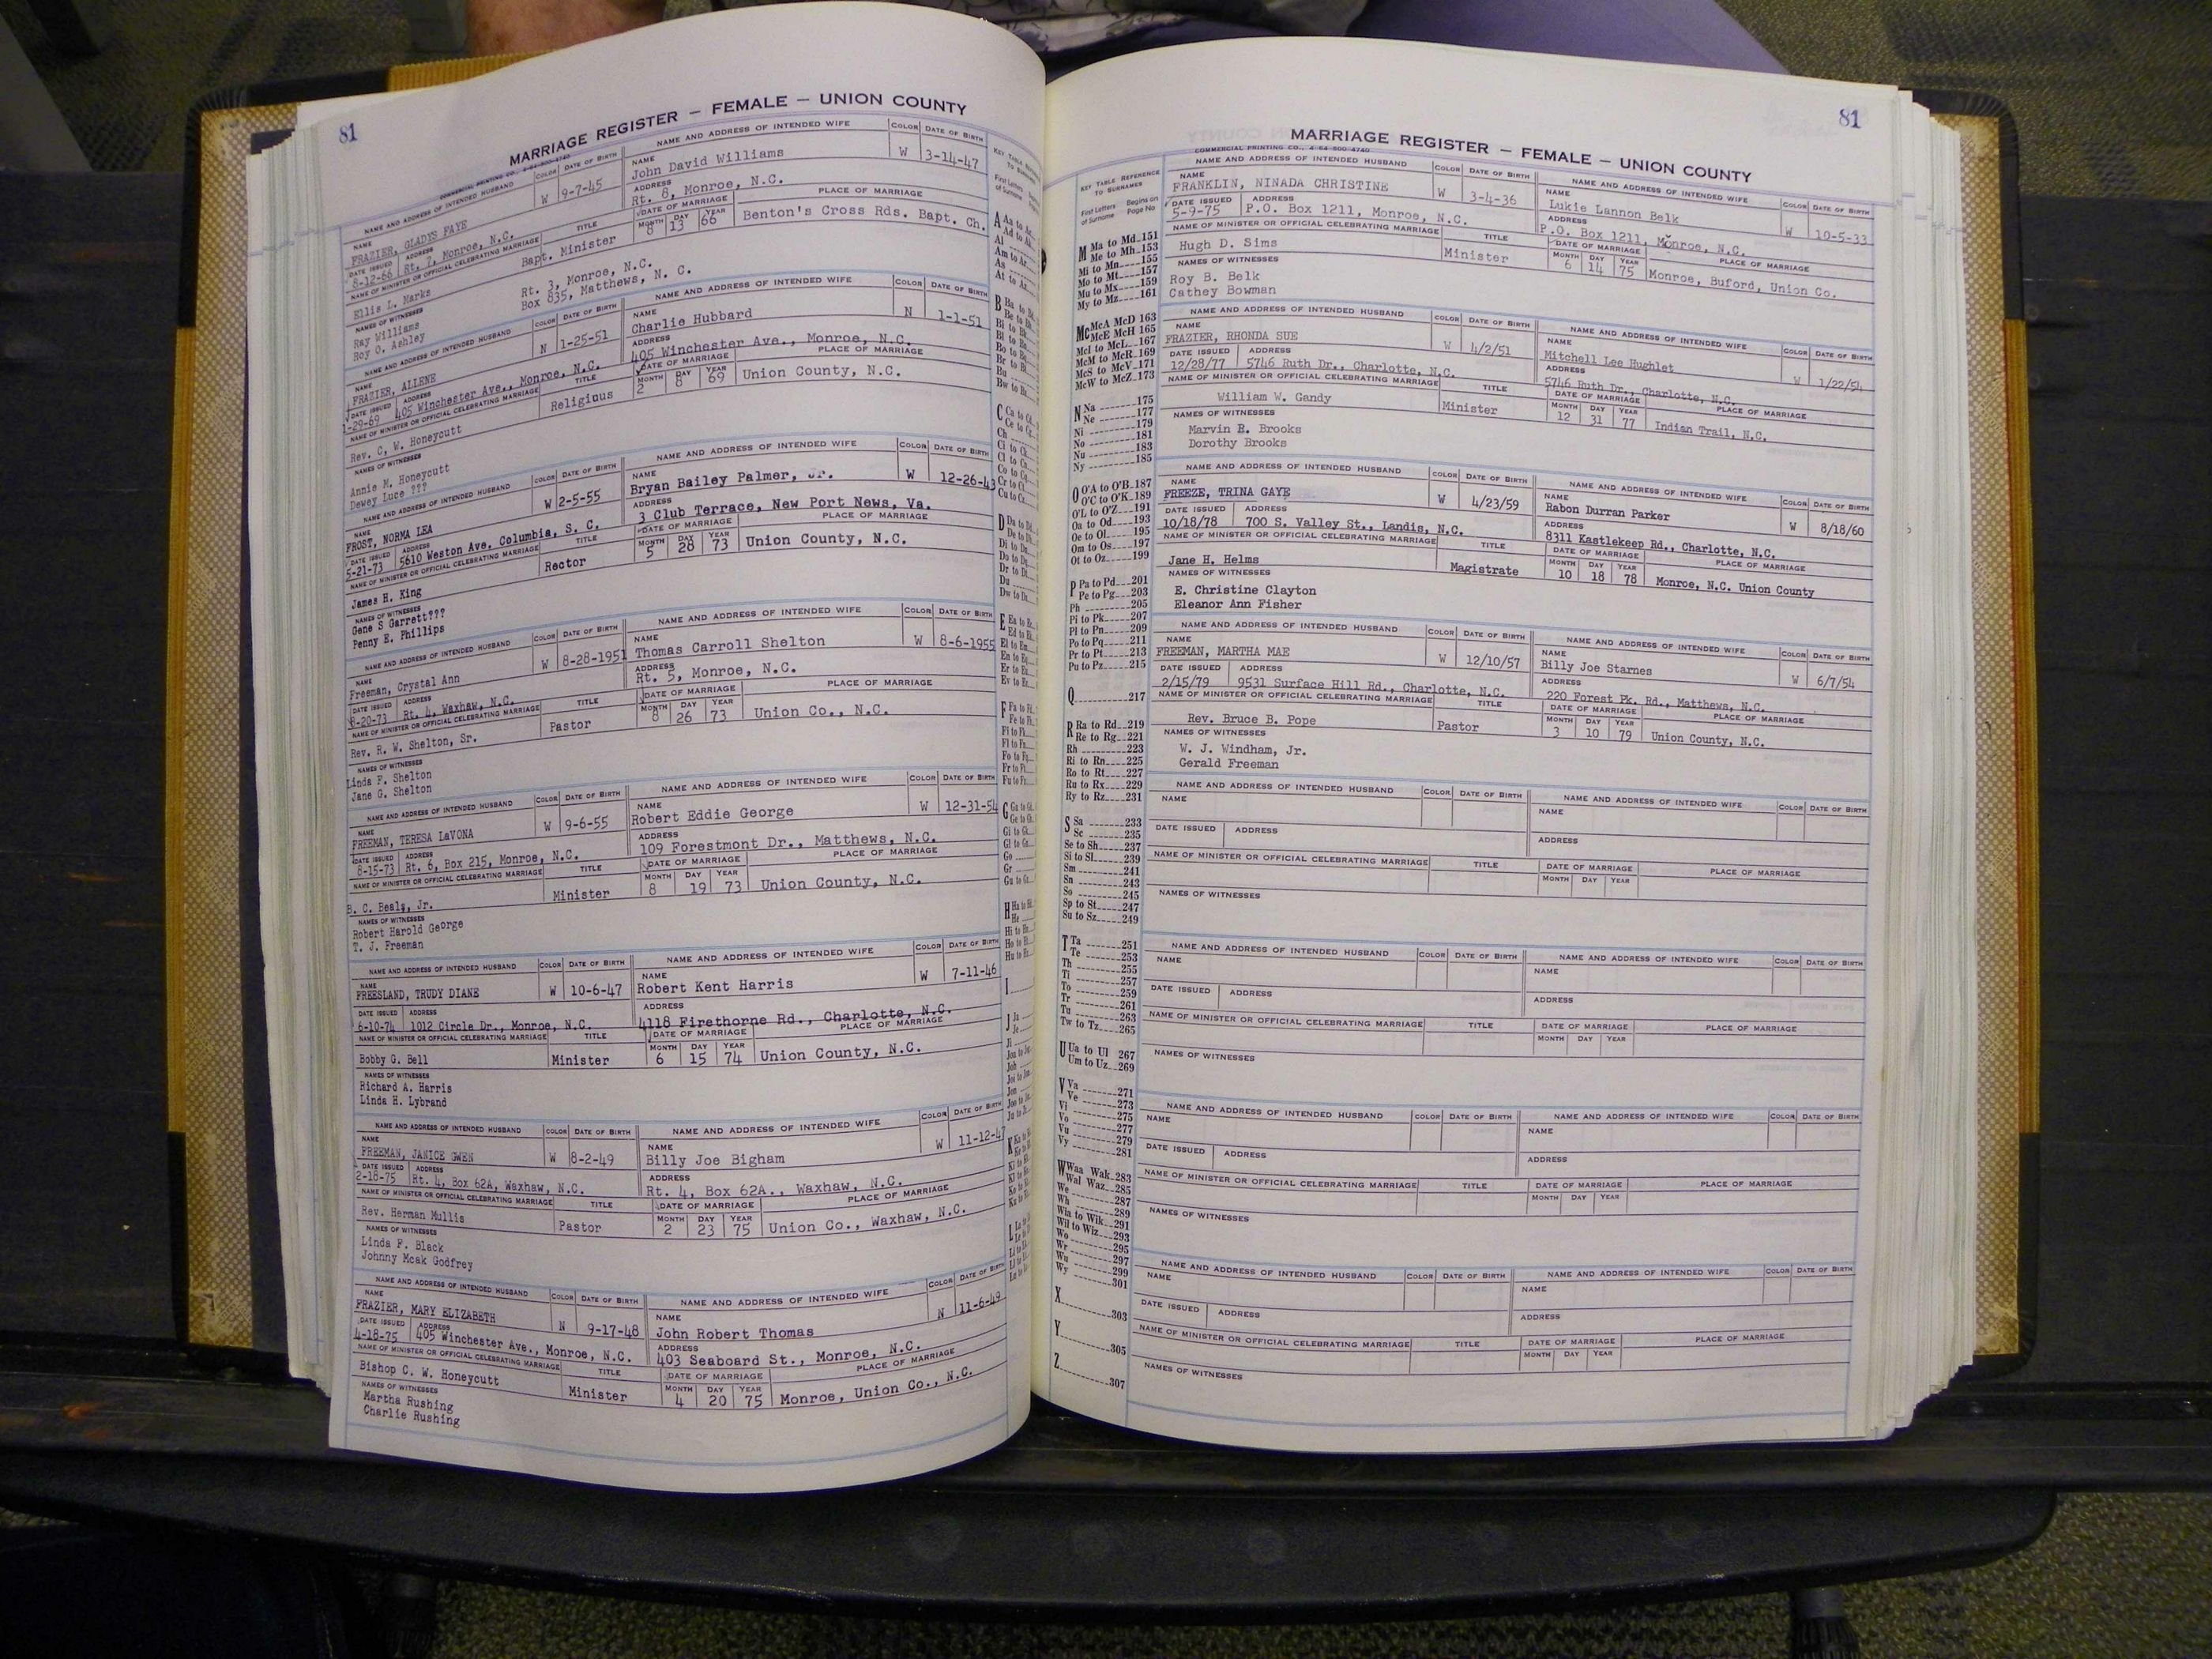 81
MARRIAGE REGISTER — FEMALE — UNION COUNTY
COMMERCIAL PRINTING CO., 4-64-800-4740
NAME AND ADDRESS OF INTENDED HUSBAND COLOR DATE OF BIRTH NAME AND ADDRESS OF INTENDED WIFE COLOR DATE OF BIRTH
NAME FRAZIER, GLADYS FAYE W 9-7-45 NAME John David Williams W 3-14-47
DATE ISSUED 8-12-66 ADDRESS Rt. 7, Monroe, N.C. ADDRESS Rt. 8, Monroe, N.C.
NAME OF MINISTER OR OFFICIAL CELEBRATING MARRIAGE TITLE DATE OF MARRIAGE PLACE OF MARRIAGE
Ellis L. Marks Bapt. Minister MONTH 8 DAY 13 YEAR 66 Benton's Cross Rds. Bapt. Ch.
NAMES OF WITNESSES
Ray Williams Rt. 3, Monroe, N.C.
Roy O. Ashley Box 835, Matthews, N. C.
NAME AND ADDRESS OF INTENDED HUSBAND COLOR DATE OF BIRTH NAME AND ADDRESS OF INTENDED WIFE COLOR DATE OF BIRTH
NAME FRAZIER, ALLENE N 1-25-51 NAME Charlie Hubbard N 1-1-51
DATE ISSUED 1-29-69 ADDRESS 405 Winchester Ave., Monroe, N.C. ADDRESS 405 Winchester Ave., Monroe, N.C.
NAME OF MINISTER OR OFFICIAL CELEBRATING MARRIAGE TITLE DATE OF MARRIAGE PLACE OF MARRIAGE
Rev. C, W. Honeycutt Religious MONTH 2 DAY 8 YEAR 69 Union County, N.C.
NAMES OF WITNESSES
Annie M, Honeycutt
Dewey Luce ???
NAME AND ADDRESS OF INTENDED HUSBAND COLOR DATE OF BIRTH NAME AND ADDRESS OF INTENDED WIFE COLOR DATE OF BIRTH
NAME FROST, NORMA LEA W 2-5-55 NAME Bryan Bailey Palmer, Jr. W 12-26-43
DATE ISSUED 5-21-73 ADDRESS 5610 Weston Ave, Columbia, S. C. ADDRESS 3 Club Terrace, New Port News, Va.
NAME OF MINISTER OR OFFICIAL CELEBRATING MARRIAGE TITLE DATE OF MARRIAGE PLACE OF MARRIAGE
James H. King Rector MONTH 5 DAY 28 YEAR 73 Union County, N.C.
NAMES OF WITNESSES
Gene S Garrett???
Penny E. Phillips
NAME AND ADDRESS OF INTENDED HUSBAND COLOR DATE OF BIRTH NAME AND ADDRESS OF INTENDED WIFE COLOR DATE OF BIRTH
NAME Freeman, Crystal Ann W 8-28-1951 NAME Thomas Carroll Shelton W 8-6-1955
DATE ISSUED 8-20-73 ADDRESS Rt. 4, Waxhaw, N.C. ADDRESS Rt. 5, Monroe, N.C.
NAME OF MINISTER OR OFFICIAL CELEBRATING MARRIAGE TITLE DATE OF MARRIAGE PLACE OF MARRIAGE
Rev. R. W. Shelton, Sr. Pastor MONTH 8 DAY 26 YEAR 73 Union Co., N.C.
NAMES OF WITNESSES
Linda F. Shelton
Jane G. Shelton
NAME AND ADDRESS OF INTENDED HUSBAND COLOR DATE OF BIRTH NAME AND ADDRESS OF INTENDED WIFE COLOR DATE OF BIRTH
NAME FREEMAN, TERESA LaVONA W 9-6-55 NAME Robert Eddie George W 12-31-54
DATE ISSUED 8-15-73 ADDRESS Rt. 6, Box 215, Monroe, N.C. ADDRESS 109 Forestmont Dr., Matthews, N.C.
NAME OF MINISTER OR OFFICIAL CELEBRATING MARRIAGE TITLE DATE OF MARRIAGE PLACE OF MARRIAGE
B. C. Bealy, Jr. Minister MONTH 8 DAY 19 YEAR 73 Union County, N.C.
NAMES OF WITNESSES
Robert Harold George
T. J. Freeman
NAME AND ADDRESS OF INTENDED HUSBAND COLOR DATE OF BIRTH NAME AND ADDRESS OF INTENDED WIFE COLOR DATE OF BIRTH
NAME FREESLAND, TRUDY DIANE W 10-6-47 NAME Robert Kent Harris W 7-11-46
DATE ISSUED 6-10-74 ADDRESS 1012 Circle Dr., Monroe, N.C. ADDRESS 4118 Firethorne Rd., Charlotte, N.C.
NAME OF MINISTER OR OFFICIAL CELEBRATING MARRIAGE TITLE DATE OF MARRIAGE PLACE OF MARRIAGE
Bobby G. Bell Minister MONTH 6 DAY 15 YEAR 74 Union County, N.C.
NAMES OF WITNESSES
Richard A. Harris
Linda H. Lybrand
NAME AND ADDRESS OF INTENDED HUSBAND COLOR DATE OF BIRTH NAME AND ADDRESS OF INTENDED WIFE COLOR DATE OF BIRTH
NAME FREEMAN, JANICE GWEN W 8-2-49 NAME Billy Joe Bigham W 11-12-47
DATE ISSUED 2-18-75 ADDRESS Rt. 4, Box 62A, Waxhaw, N.C. ADDRESS Rt. 4, Box 62A., Waxhaw, N.C.
NAME OF MINISTER OR OFFICIAL CELEBRATING MARRIAGE TITLE DATE OF MARRIAGE PLACE OF MARRIAGE
Rev. Herman Mullis Pastor MONTH 2 DAY 23 YEAR 75 Union Co., Waxhaw, N.C.
NAMES OF WITNESSES
Linda F. Black
Johnny Mcak Godfrey
NAME AND ADDRESS OF INTENDED HUSBAND COLOR DATE OF BIRTH NAME AND ADDRESS OF INTENDED WIFE COLOR DATE OF BIRTH
NAME FRAZIER, MARY ELIZABETH N 9-17-48 NAME John Robert Thomas N 11-6-49
DATE ISSUED 4-18-75 ADDRESS 405 Winchester Ave., Monroe, N.C. ADDRESS 403 Seaboard St., Monroe, N.C.
NAME OF MINISTER OR OFFICIAL CELEBRATING MARRIAGE TITLE DATE OF MARRIAGE PLACE OF MARRIAGE
Bishop C. W. Honeycutt Minister MONTH 4 DAY 20 YEAR 75 Monroe, Union Co., N.C.
NAMES OF WITNESSES
Martha Rushing
Charlie Rushing
81
MARRIAGE REGISTER — FEMALE — UNION COUNTY
COMMERCIAL PRINTING CO., 4-64-800-4740
KEY TABLE REFERENCE TO SURNAMES
First Letters of Surname Begins on Page No
M Ma to Md 151
Me to Mh 153
Mi to Mn 155
Mo to Mt 157
Mu to Mx 159
My to Mz 161
Mc McA McD 163
McE McH 165
McI to McL 167
McM to McR 169
McS to McV 171
McW to McZ 173
N Na 175
Ne 177
Ni 179
No 181
Nu 183
Ny 185
O O'A to O'B 187
O'C to O'K 189
O'L to O'Z 191
Oa to Od 193
Oe to Ol 195
Om to Os 197
Ot to Oz 199
P Pa to Pd 201
Pe to Pg 203
Ph 205
Pi to Pk 207
Pl to Pn 209
Po to Pq 211
Pr to Pt 213
Pu to Pz 215
Q 217
R Ra to Rd 219
Re to Rg 221
Rh 223
Ri to Rn 225
Ro to Rt 227
Ru to Rx 229
Ry to Rz 231
S Sa 233
Sc 235
Se to Sh 237
Si to Sl 239
Sm 241
Sn 243
So 245
Sp to St 247
Su to Sz 249
T Ta 251
Te 253
Th 255
Ti 257
To 259
Tr 261
Tu 263
Tw to Tz 265
U Ua to Ul 267
Um to Uz 269
V Va 271
Ve 273
Vi 275
Vo 277
Vu 279
Vy 281
W Waa Wak 283
Wal Waz 285
We 287
Wh 289
Wia to Wik 291
Wil to Wiz 293
Wo 295
Wr 297
Wu 299
Wy 301
X 303
Y 305
Z 307
NAME AND ADDRESS OF INTENDED HUSBAND COLOR DATE OF BIRTH NAME AND ADDRESS OF INTENDED WIFE COLOR DATE OF BIRTH
NAME FRANKLIN, NINADA CHRISTINE W 3-4-36 NAME Lukie Lannon Belk W 10-5-33
DATE ISSUED 5-9-75 ADDRESS P.O. Box 1211, Monroe, N.C. ADDRESS P.O. Box 1211, Monroe, N.C.
NAME OF MINISTER OR OFFICIAL CELEBRATING MARRIAGE TITLE DATE OF MARRIAGE PLACE OF MARRIAGE
Hugh D. Sims Minister MONTH 6 DAY 14 YEAR 75 Monroe, Buford, Union Co.
NAMES OF WITNESSES
Roy B. Belk
Cathey Bowman
NAME AND ADDRESS OF INTENDED HUSBAND COLOR DATE OF BIRTH NAME AND ADDRESS OF INTENDED WIFE COLOR DATE OF BIRTH
NAME FRAZIER, RHONDA SUE W 4/2/51 NAME Mitchell Lee Hughlet W 1/22/54
DATE ISSUED 12/28/77 ADDRESS 5746 Ruth Dr., Charlotte, N.C. ADDRESS 5746 Ruth Dr., Charlotte, N.C.
NAME OF MINISTER OR OFFICIAL CELEBRATING MARRIAGE TITLE DATE OF MARRIAGE PLACE OF MARRIAGE
William W. Gandy Minister MONTH 12 DAY 31 YEAR 77 Indian Trail, N.C.
NAMES OF WITNESSES
Marvin E. Brooks
Dorothy Brooks
NAME AND ADDRESS OF INTENDED HUSBAND COLOR DATE OF BIRTH NAME AND ADDRESS OF INTENDED WIFE COLOR DATE OF BIRTH
NAME FREEZE, TRINA GAYE W 4/23/59 NAME Rabon Durran Parker W 8/18/60
DATE ISSUED 10/18/78 ADDRESS 700 S. Valley St., Landis, N.C. ADDRESS 8311 Kastlekeep Rd., Charlotte, N.C.
NAME OF MINISTER OR OFFICIAL CELEBRATING MARRIAGE TITLE DATE OF MARRIAGE PLACE OF MARRIAGE
Jane H. Helms Magistrate MONTH 10 DAY 18 YEAR 78 Monroe, N.C. Union County
NAMES OF WITNESSES
E. Christine Clayton
Eleanor Ann Fisher
NAME AND ADDRESS OF INTENDED HUSBAND COLOR DATE OF BIRTH NAME AND ADDRESS OF INTENDED WIFE COLOR DATE OF BIRTH
NAME FREEMAN, MARTHA MAE W 12/10/57 NAME Billy Joe Starnes W 6/7/54
DATE ISSUED 2/15/79 ADDRESS 9531 Surface Hill Rd., Charlotte, N.C. ADDRESS 220 Forest Pk. Rd., Matthews, N.C.
NAME OF MINISTER OR OFFICIAL CELEBRATING MARRIAGE TITLE DATE OF MARRIAGE PLACE OF MARRIAGE
Rev. Bruce B. Pope Pastor MONTH 3 DAY 10 YEAR 79 Union County, N.C.
NAMES OF WITNESSES
W. J. Windham, Jr.
Gerald Freeman
NAME AND ADDRESS OF INTENDED HUSBAND COLOR DATE OF BIRTH NAME AND ADDRESS OF INTENDED WIFE COLOR DATE OF BIRTH
NAME NAME
DATE ISSUED ADDRESS ADDRESS
NAME OF MINISTER OR OFFICIAL CELEBRATING MARRIAGE TITLE DATE OF MARRIAGE PLACE OF MARRIAGE
MONTH DAY YEAR
NAMES OF WITNESSES
NAME AND ADDRESS OF INTENDED HUSBAND COLOR DATE OF BIRTH NAME AND ADDRESS OF INTENDED WIFE COLOR DATE OF BIRTH
NAME NAME
DATE ISSUED ADDRESS ADDRESS
NAME OF MINISTER OR OFFICIAL CELEBRATING MARRIAGE TITLE DATE OF MARRIAGE PLACE OF MARRIAGE
MONTH DAY YEAR
NAMES OF WITNESSES
NAME AND ADDRESS OF INTENDED HUSBAND COLOR DATE OF BIRTH NAME AND ADDRESS OF INTENDED WIFE COLOR DATE OF BIRTH
NAME NAME
DATE ISSUED ADDRESS ADDRESS
NAME OF MINISTER OR OFFICIAL CELEBRATING MARRIAGE TITLE DATE OF MARRIAGE PLACE OF MARRIAGE
MONTH DAY YEAR
NAMES OF WITNESSES
NAME AND ADDRESS OF INTENDED HUSBAND COLOR DATE OF BIRTH NAME AND ADDRESS OF INTENDED WIFE COLOR DATE OF BIRTH
NAME NAME
DATE ISSUED ADDRESS ADDRESS
NAME OF MINISTER OR OFFICIAL CELEBRATING MARRIAGE TITLE DATE OF MARRIAGE PLACE OF MARRIAGE
MONTH DAY YEAR
NAMES OF WITNESSES